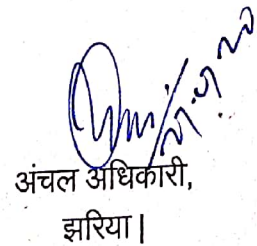 अंचल अधिकारी,
झरिया |